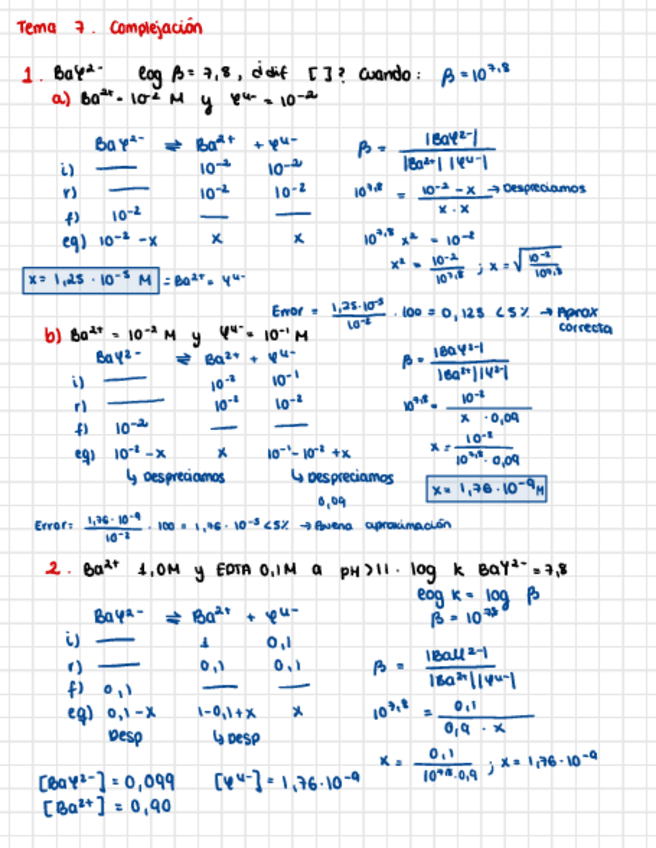 Tema 7. Complejación
1. BaY²⁻ log β = 7,8, ¿dif [ ]? Cuando: β = 10^7,8
a) Ba²⁺ = 10⁻² M y Y⁴⁻ = 10⁻²
BaY²⁻ ⇌ Ba²⁺ + Y⁴⁻
i) — 10⁻² 10⁻²
r) — 10⁻² 10⁻²
f) 10⁻² — —
eq) 10⁻² - x x x
β = |BaY²⁻| / |Ba²⁺| |Y⁴⁻|
10^7,8 = 10⁻² - x / x · x → Despreciamos
10^7,8 x² = 10⁻²
x² = 10⁻² / 10^7,8 ; x = √(10⁻² / 10^7,8)
x = 1,25 · 10⁻⁵ M = Ba²⁺ = Y⁴⁻
Error = 1,25·10⁻⁵ / 10⁻² · 100 = 0,125 < 5% → Aprox correcta
b) Ba²⁺ = 10⁻² M y Y⁴⁻ = 10⁻¹ M
BaY²⁻ ⇌ Ba²⁺ + Y⁴⁻
i) — 10⁻² 10⁻¹
r) — 10⁻² 10⁻²
f) 10⁻² — —
eq) 10⁻² - x x 10⁻¹ - 10⁻² + x
↳ Despreciamos ↳ Despreciamos
0,09
β = |BaY²⁻| / |Ba²⁺||Y²⁻|
10^7,8 = 10⁻² / x · 0,09
x = 10⁻² / 10^7,8 · 0,09
x = 1,76 · 10⁻⁹ M
Error: 1,76 · 10⁻⁹ / 10⁻² · 100 = 1,76 · 10⁻⁵ < 5% → Buena aproximación
2. Ba²⁺ 1,0M y EDTA 0,1M a pH > 11. log k BaY²⁻ = 7,8
log k = log β
β = 10^7,8
BaY²⁻ ⇌ Ba²⁺ + Y⁴⁻
i) — 1 0,1
r) — 0,1 0,1
f) 0,1 — —
eq) 0,1 - x 1-0,1+x x
Desp ↳ Desp
β = |BaY²⁻| / |Ba²⁺||Y⁴⁻|
10^7,8 = 0,1 / 0,9 · x
x = 0,1 / 10^7,8 · 0,9 ; x = 1,76 · 10⁻⁹
[BaY²⁻] = 0,099 [Y⁴⁻] = 1,76 · 10⁻⁹
[Ba²⁺] = 0,90